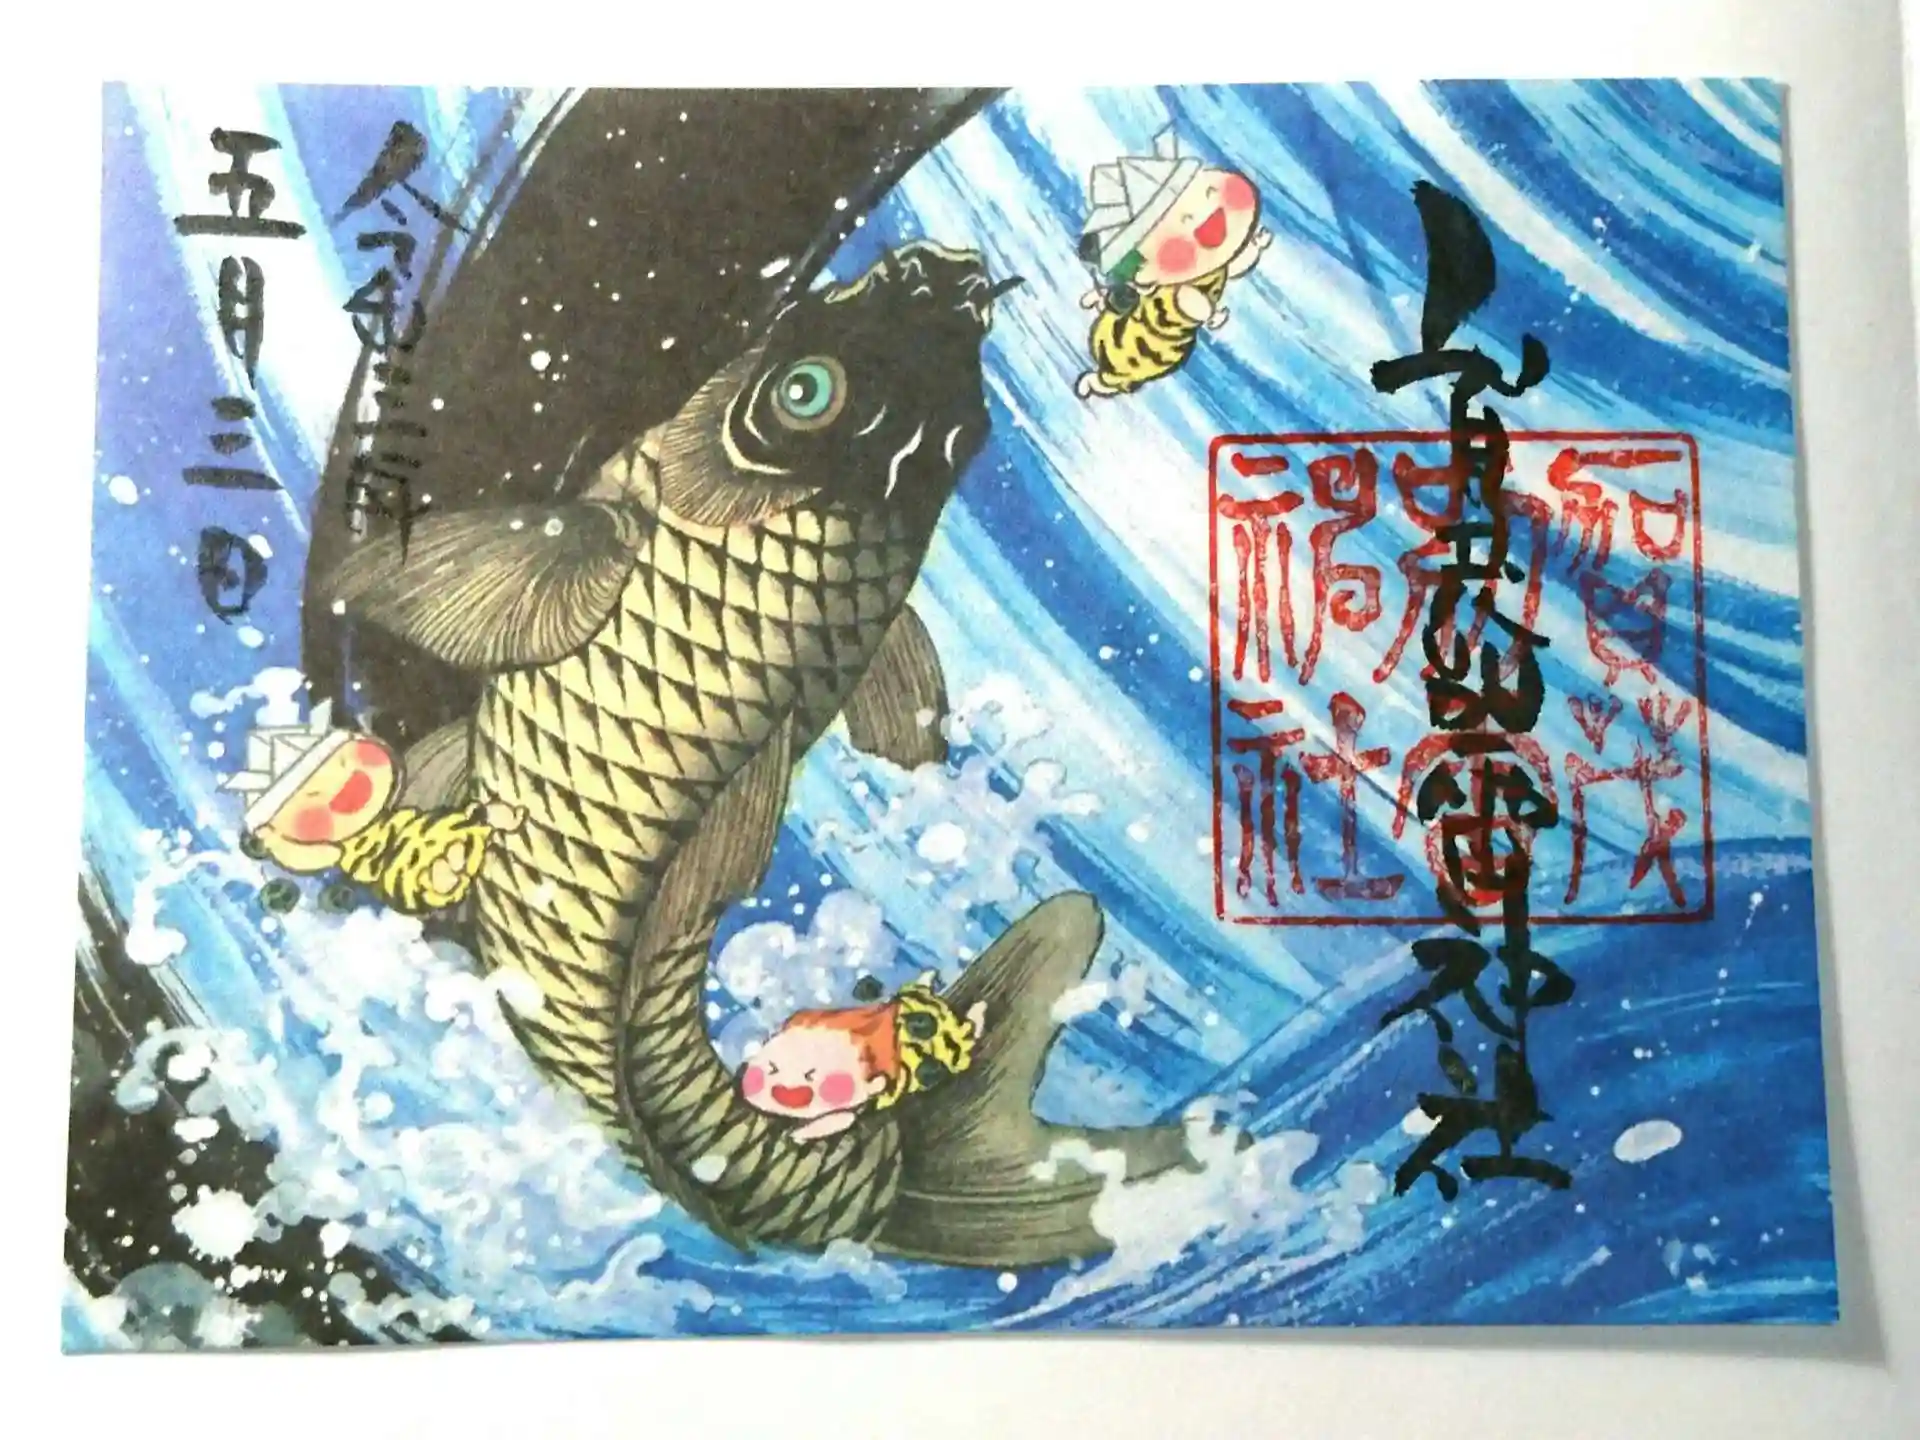 賀茂別雷神社
賀茂
別雷
神社
令和三年
五月三日